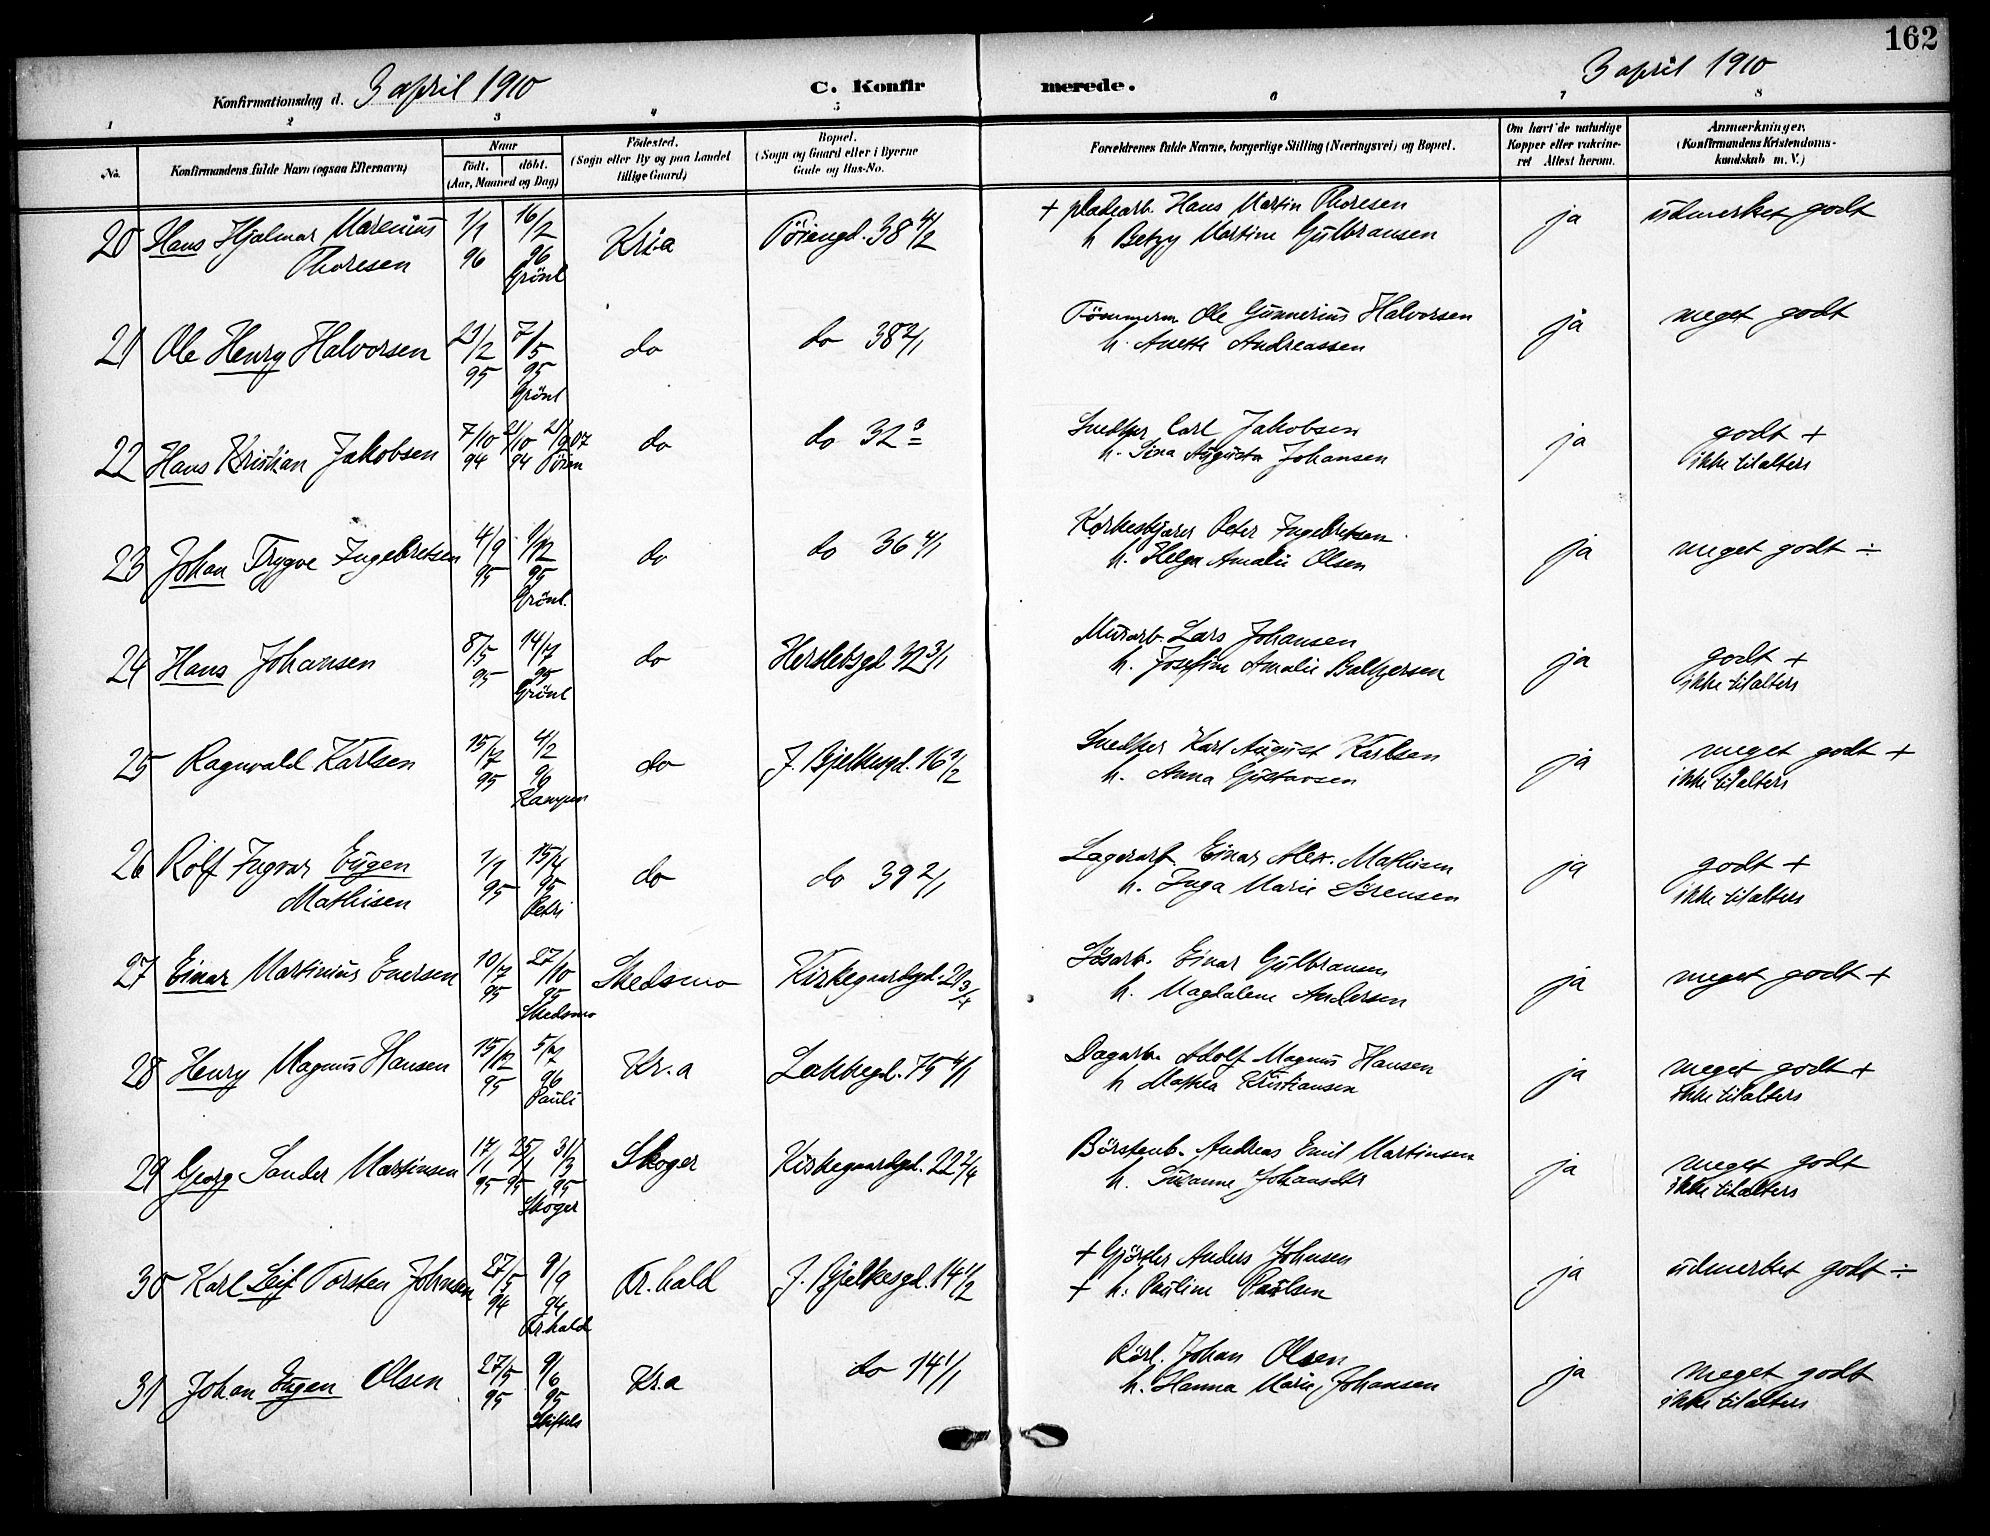 162
Konfirmationsdag d. 3 april 1910
C. Konfirmerede.
3 april 1910
1 2 3 4 5 6 7 8
No.
Konfirmandens fulde Navn (ogsaa Efternavn)
Naar
født. døbt.
(Aar, Maaned og Dag)
Fødested.
(Sogn eller By og paa Landet
tillige Gaard)
Bopæl.
(Sogn og Gaard eller i Byerne
Gade og Hus-No.
Forældrenes fulde Navne, borgerlige Stilling (Næringsvei) og Bopæl.
Om havt de naturlige
Kopper eller vakcine-
ret Attest herom.
Anmærkninger.
(Konfirmandens Kristendoms-
kundskab m. V.)
20 Hans Hjalmar Marenius 1/1 16/2 Kr.a Töiengd. 38 4/2 + pladearb. Hans Martin Thoresen ja udmerket godt
Thoresen 96 96 h Betzy Martine Gulbransen
Grönl
21 Ole Henry Halvorsen 21/2 7/5 do do 38 2/1 Tömmerm. Ole Gunnerius Halvorsen ja meget godt
95 95 h. Anette Andreassen
Grönl
22 Hans Kristian Jakobsen 7/10 21/10 do do 32 Snedker Carl Jakobsen ja godt +
94 94 Töien h. Lina Augusta Johansen ikke til alters
23 Johan Trygve Ingebretsen 4/9 1/12 do do 36 4/1 Korkeskjærer Peter Ingebretsen ja meget godt ÷
95 95 h. Helga Amalie Olsen
Grönl.
24 Hans Johansen 8/5 14/7 do Herslebsgd 42 3/1 Murarb. Lars Johansen ja godt +
95 95 h. Josefine Amalie Baltzersen ikke til alters
Grönl
25 Ragnvald Karlsen 15/7 4/2 do J. Bjelkesgd. 16 Snedker Karl August Karlsen ja meget godt +
95 96 h. Anna Gustavsen ikke til alters
Kampen
26 Rolf Ingvar Eugen 1/1 15/4 do do 39 2/1 Lagerarb. Einar Alex. Mathisen ja godt +
Mathisen 95 95 h. Inga Marie Sörensen ikke til alters
Petri
27 Einar Martinius Enersen 10/7 27/10 Skedsmo Kirkegaardsgd. 21 3/4 Lösarb. Einar Gulbransen ja meget godt +
95 95 h. Magdalene Andersen
Skedsmo
28 Henry Magnus Hansen 15/12 5/7 Kr.a Lakkegd. 75 4/1 Dagarb. Adolf Magnus Hansen ja meget godt +
95 96 h Mathea Kristiansen ikke til alters
Pauli
29 Georg Sander Martinsen 17/1 25/1 31/3 Skoger Kirkegaardsgd. 22 2/4 Börstenb. Andreas Emil Martinsen ja meget godt
95 95 95 h. Susanne Johansdtr ikke til alters
Skoger
30 Karl Leif Torsten Johnsen 27/5 9/9 Fr.hald J. Bjelkesgd. 14 1/2 + Gjörtler Anders Johnsen ja udmerket godt ÷
94 94 + h. Pauline Paulsen
Fr.hald
31 Johan Eugen Olsen 27/5 9/6 Kr.a do 14 1/1 Rörl. Johan Olsen ja meget godt
95 95 h. Hanna Marie Johansen ikke til alters